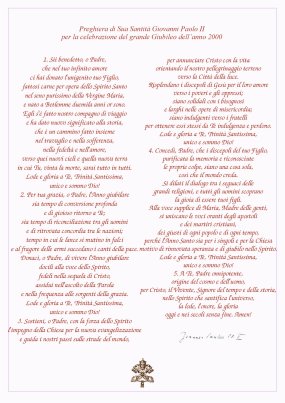 Preghiera di Sua Santità Giovanni Paolo II
per la celebrazione del grande Giubileo dell'anno 2000
1. Sii benedetto, o Padre,
che nel tuo infinito amore
ci hai donato l'unigenito tuo Figlio,
fattosi carne per opera dello Spirito Santo
nel seno purissimo della Vergine Maria,
e nato a Betlemme duemila anni or sono.
Egli s'è fatto nostro compagno di viaggio
e ha dato nuovo significato alla storia,
che è un cammino fatto insieme
nel travaglio e nella sofferenza,
nella fedeltà e nell'amore,
verso quei nuovi cieli e quella nuova terra
in cui Tu, vinta la morte, sarai tutto in tutti.
Lode e gloria a Te, Trinità Santissima,
unico e sommo Dio!
2. Per tua grazia, o Padre, l'Anno giubilare
sia tempo di conversione profonda
e di gioioso ritorno a Te;
sia tempo di riconciliazione tra gli uomini
e di ritrovata concordia tra le nazioni;
tempo in cui le lance si mutino in falci
e al fragore delle armi succedano i canti della pace.
Donaci, o Padre, di vivere l'Anno giubilare
docili alla voce dello Spirito,
fedeli nella sequela di Cristo,
assidui nell'ascolto della Parola
e nella frequenza alle sorgenti della grazia.
Lode e gloria a Te, Trinità Santissima,
unico e sommo Dio!
3. Sostieni, o Padre, con la forza dello Spirito
l'impegno della Chiesa per la nuova evangelizzazione
e guida i nostri passi sulle strade del mondo,
per annunciare Cristo con la vita
orientando il nostro pellegrinaggio terreno
verso la Città della luce.
Risplendano i discepoli di Gesù per il loro amore
verso i poveri e gli oppressi;
siano solidali con i bisognosi
e larghi nelle opere di misericordia;
siano indulgenti verso i fratelli
per ottenere essi stessi da Te indulgenza e perdono.
Lode e gloria a Te, Trinità Santissima,
unico e sommo Dio!
4. Concedi, Padre, che i discepoli del tuo Figlio,
purificata la memoria e riconosciute
le proprie colpe, siano una cosa sola,
così che il mondo creda.
Si dilati il dialogo tra i seguaci delle
grandi religioni, e tutti gli uomini scoprano
la gioia di essere tuoi figli.
Alla voce supplice di Maria, Madre delle genti,
si uniscano le voci oranti degli apostoli
e dei martiri cristiani,
dei giusti di ogni popolo e di ogni tempo,
perché l'Anno santo sia per i singoli e per la Chiesa
motivo di rinnovata speranza e di giubilo nello Spirito.
Lode e gloria a Te, Trinità Santissima,
unico e sommo Dio!
5. A Te, Padre onnipotente,
origine del cosmo e dell'uomo,
per Cristo, il Vivente, Signore del tempo e della storia,
nello Spirito che santifica l'universo,
la lode, l'onore, la gloria
oggi e nei secoli senza fine. Amen!
Joannes Paulus PP. II